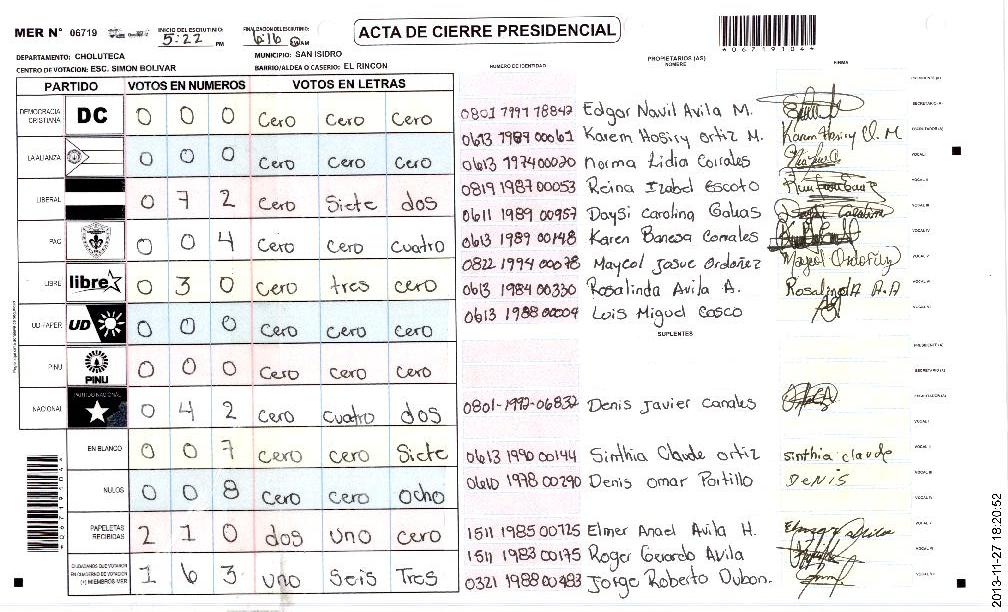 MER N° 06719 INICIO DEL ESCRUTINIO: 5:22 PM FINALIZACIÓN ESCRUTINIO: 6:16 AM
ACTA DE CIERRE PRESIDENCIAL
*067191044*
DEPARTAMENTO: CHOLUTECA MUNICIPIO: SAN ISIDRO
CENTRO DE VOTACION: ESC. SIMON BOLIVAR BARRIO/ALDEA O CASERIO: EL RINCON
NUMERO DE IDENTIDAD PROPIETARIOS (AS) NOMBRE FIRMA
PARTIDO VOTOS EN NUMEROS VOTOS EN LETRAS
DEMOCRACIA CRISTIANA DC 0 0 0 Cero Cero Cero
LA ALIANZA 0 0 0 Cero Cero Cero
LIBERAL 0 7 2 Cero Siete dos
PAC 0 0 4 Cero Cero Cuatro
LIBRE libre 0 3 0 Cero tres Cero
UD-FAPER UD 0 0 0 Cero Cero Cero
PINU PINU 0 0 0 Cero Cero Cero
NACIONAL PARTIDO NACIONAL 0 4 2 Cero Cuatro dos
EN BLANCO 0 0 7 Cero Cero Siete
NULOS 0 0 8 Cero Cero Ocho
PAPELETAS RECIBIDAS 2 1 0 dos uno cero
CIUDADANOS QUE VOTARON EN CUADERNO DE VOTACION (+) MIEMBROS MER 1 6 3 uno Seis Tres
Edgar Navil Avila M.
0613 1989 00061 Karem Hosiry Ortiz M. Karem Hosiry O. M
0613 1974 00020 Norma Lidia Corrales
0819 1987 00053 Reina Izabel Escoto
0611 1989 00957 Daysi Carolina Galvas
0613 1989 00148 Karen Banesa Corrales
0822 1994 00078 Maycol Josue Ordoñez Maycol Ordoñez
0613 1984 00330 Rosalinda Avila A. Rosalinda A.A
0613 1988 00004 Luis Miguel Cosco
SUPLENTES
0801-1992-06832 Denis Javier Canales
0613 1990 00144 Sinthia Claude Ortiz Sinthia claude
0610 1978 00290 Denis Omar Portillo DENIS
1511 1985 00725 Elmer Anael Avila H.
1511 1983 00175 Roger Gerardo Avila
0321 1988 00483 Jorge Roberto Dubon.
*067191044*
2013-11-27 18:20:52